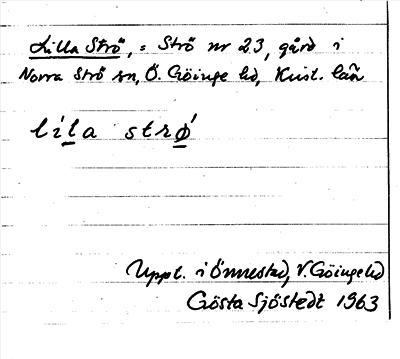 Lilla Strö, = Strö nr 23, gård i
Norra Strö sn, Ö. Göinge hd, Krist. län
lila strø
Uppt. i Önnestad, V. Göinge hd
Gösta Sjöstedt 1963